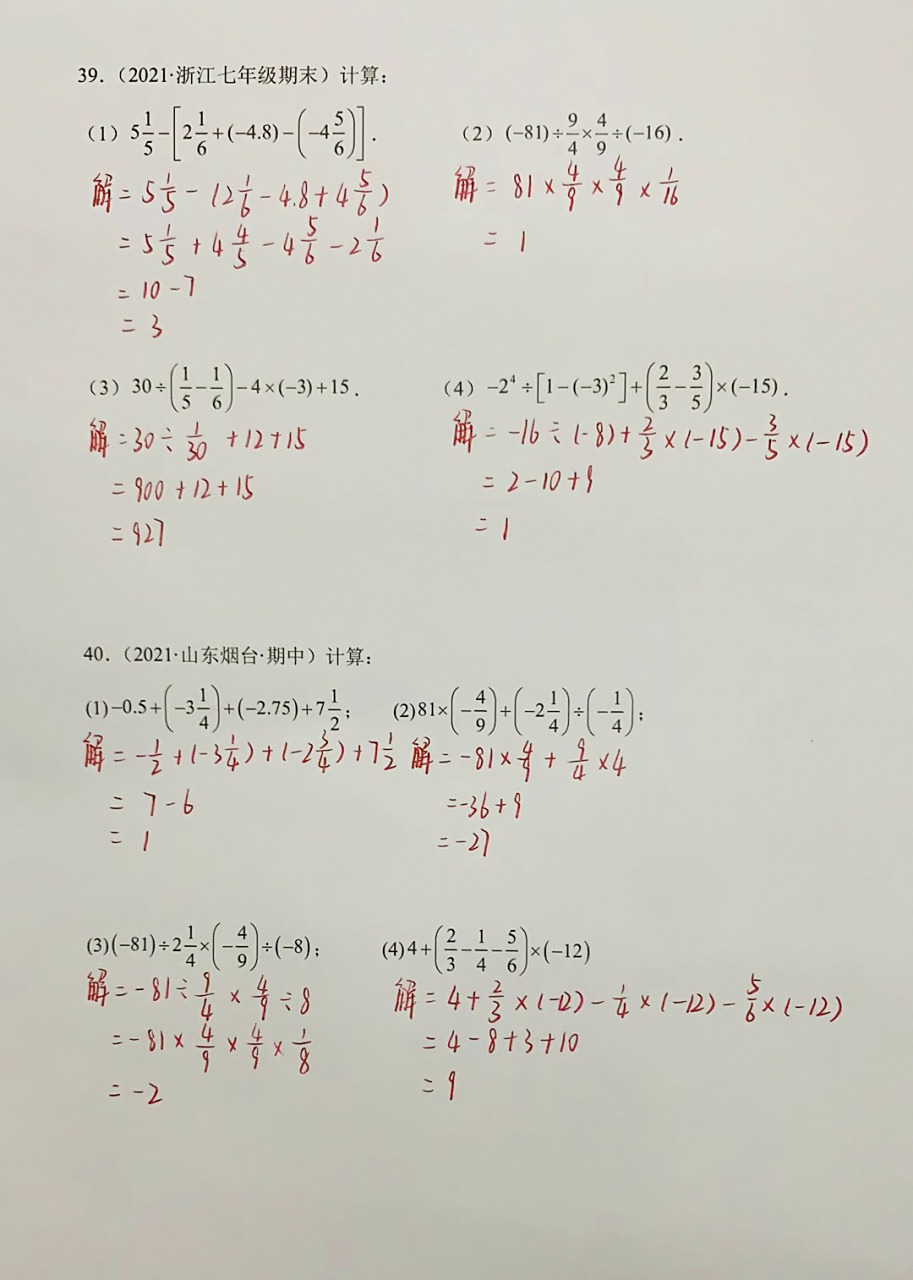 39.（2021·浙江七年级期末）计算：
（1）5 1/5 − [2 1/6 + (−4.8) − (−4 5/6)]．
解 = 5 1/5 − (2 1/6 − 4.8 + 4 5/6)
= 5 1/5 + 4 4/5 − 4 5/6 − 2 1/6
= 10 − 7
= 3
（2）(−81) ÷ 9/4 × 4/9 ÷ (−16)．
解 = 81 × 4/9 × 4/9 × 1/16
= 1
（3）30 ÷ (1/5 − 1/6) − 4 × (−3) + 15．
解 = 30 ÷ 1/30 + 12 + 15
= 900 + 12 + 15
= 927
（4）−2⁴ ÷ [1 − (−3)²] + (2/3 − 3/5) × (−15)．
解 = −16 ÷ (−8) + 2/3 × (−15) − 3/5 × (−15)
= 2 − 10 + 9
= 1
40.（2021·山东烟台·期中）计算：
(1) −0.5 + (−3 1/4) + (−2.75) + 7 1/2；
解 = −1/2 + (−3 1/4) + (−2 3/4) + 7 1/2
= 7 − 6
= 1
(2) 81 × (−4/9) + (−2 1/4) ÷ (−1/4)；
解 = −81 × 4/9 + 9/4 × 4
= −36 + 9
= −27
(3) (−81) ÷ 2 1/4 × (−4/9) ÷ (−8)；
解 = −81 ÷ 9/4 × 4/9 ÷ 8
= −81 × 4/9 × 4/9 × 1/8
= −2
(4) 4 + (2/3 − 1/4 − 5/6) × (−12)
解 = 4 + 2/3 × (−12) − 1/4 × (−12) − 5/6 × (−12)
= 4 − 8 + 3 + 10
= 9